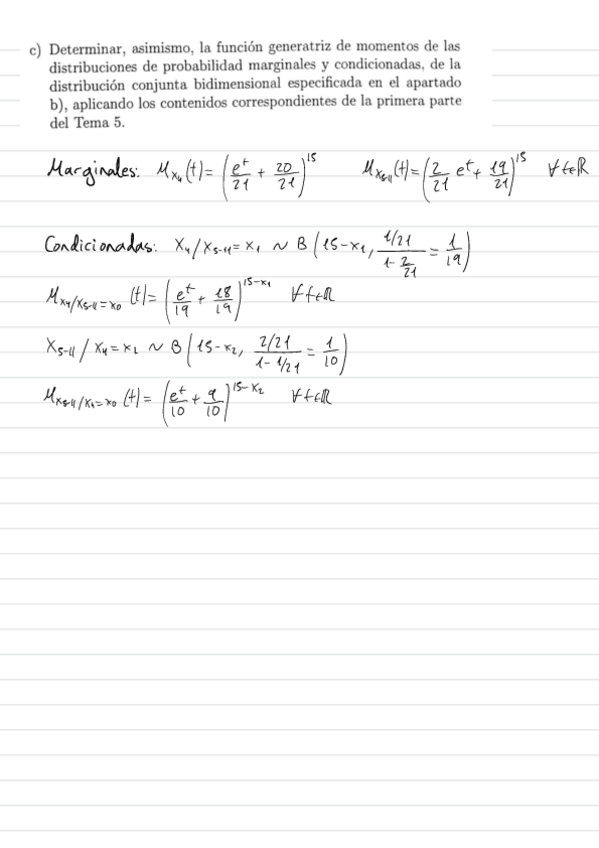 c) Determinar, asimismo, la función generatriz de momentos de las
distribuciones de probabilidad marginales y condicionadas, de la
distribución conjunta bidimensional especificada en el apartado
b), aplicando los contenidos correspondientes de la primera parte
del Tema 5.
Marginales: M_{X_4}(t) = (e^t/21 + 20/21)^{15} M_{X_{5-11}}(t) = (2/21 e^t + 19/21)^{15} ∀t∈ℝ
Condicionadas: X_4/X_{5-11}=x_1 ~ B(15-x_1, (1/21)/(1-2/21) = 1/19)
M_{X_4/X_{5-11}=x_0}(t) = (e^t/19 + 18/19)^{15-x_1} ∀t∈ℝ
X_{5-11}/X_4=x_2 ~ B(15-x_2, (2/21)/(1-1/21) = 1/10)
M_{X_{5-11}/X_1=x_0}(t) = (e^t/10 + 9/10)^{15-x_2} ∀t∈ℝ